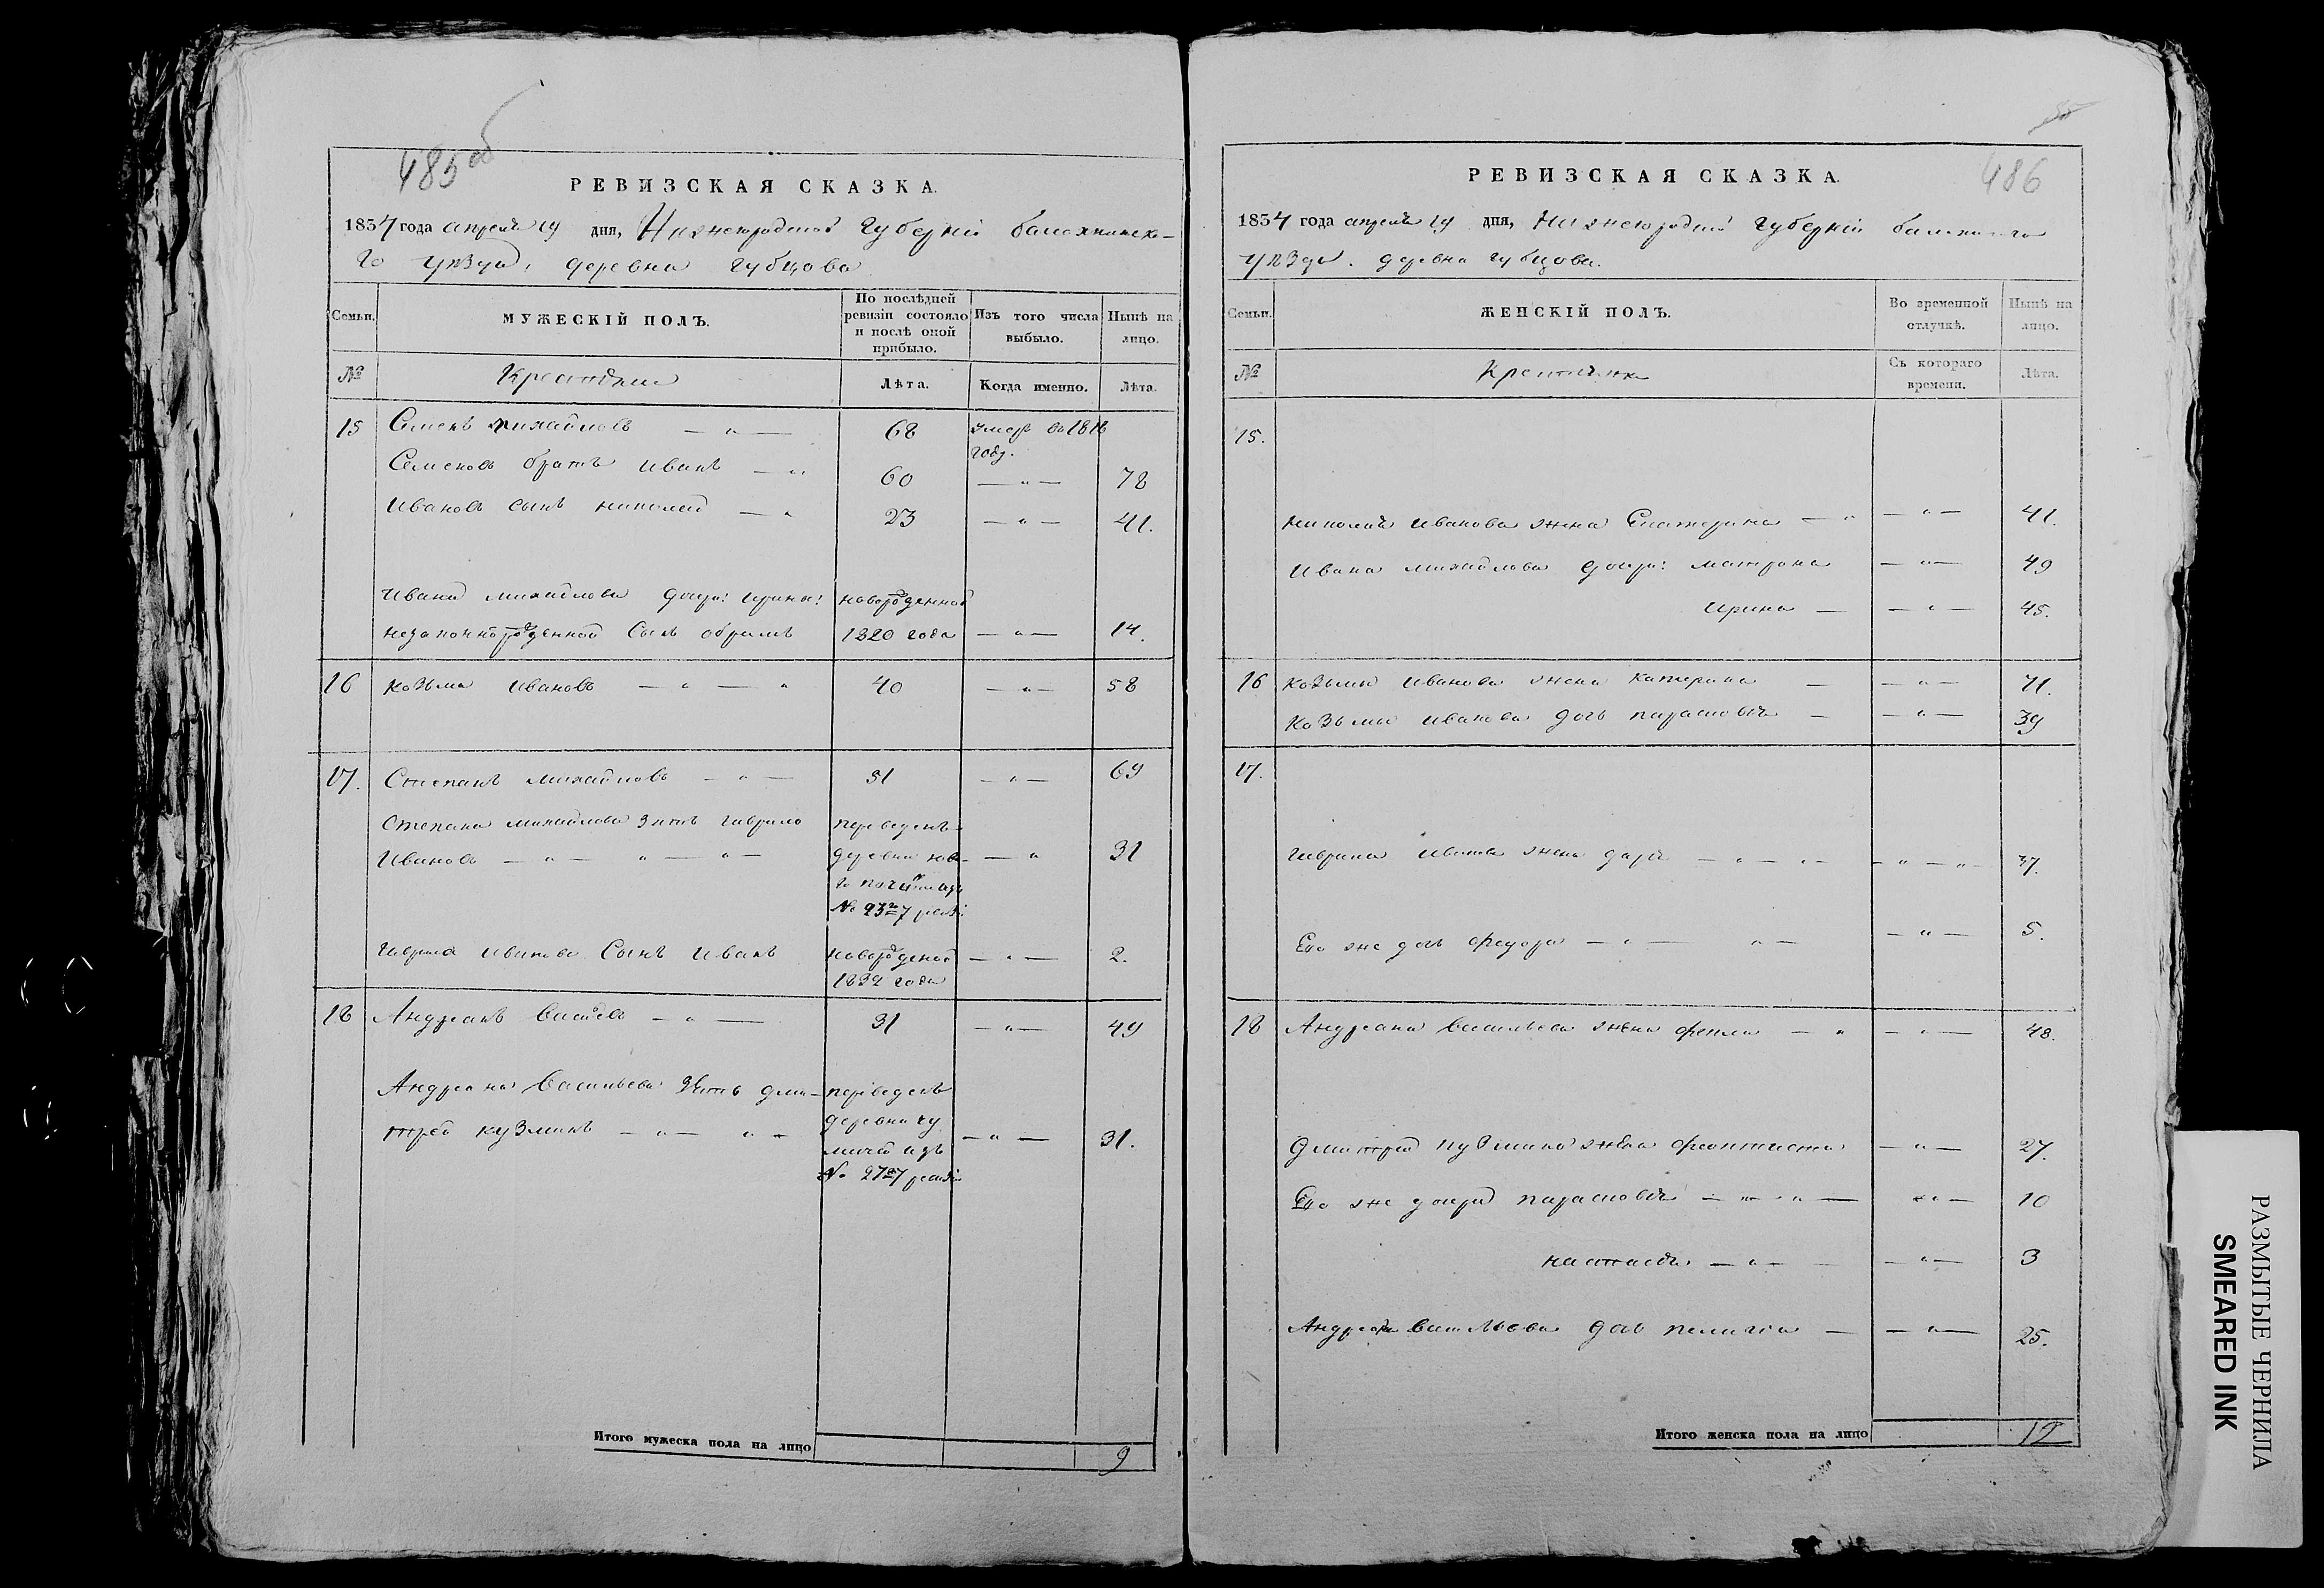 485 об
РЕВИЗСКАЯ СКАЗКА.
1834 года апреля 19 дня, Нижегородской Губернiи балахнинска-
го уѣзда, деревни губцова
Семьи.
МУЖЕСКIЙ ПОЛЪ.
По послѣдней ревизiи состояло и послѣ оной прибыло.
Изъ того числа выбыло.
Нынѣ на лицо.
№
Крестьяне
Лѣта.
Когда именно.
Лѣта.
15 Семенъ михайловъ — " — 68 умеръ въ 1816 году.
Семеновъ братъ иванъ — " 60 — " — 78
Ивановъ сынъ николай — " 23 — " — 41.
Ивана михайлова дочери ирины новорожденной
незаконнорожденной сынъ абрамъ 1820 года — " — 14.
16 Козьма ивановъ — " — " 40 — " — 58
17. Степанъ михайловъ — " — 51 — " — 69
Степана михайлова зять гаврило переведенъ
Ивановъ — " — " — " — деревни ново- — " 31
го починка изъ
№ 93 7 ревизи
гаврила иванова Сынъ иванъ новорожденой — " — 2.
1832 года
18 Андреанъ васильевъ — " — 31 — " — 49
Андреана васильева зять дми- переведенъ
трей кузминъ — " — " — деревни — " — 31.
изъ
№ 27 7 ревизи
Итого мужеска пола на лицо 9
486
РЕВИЗСКАЯ СКАЗКА.
1834 года апреля 19 дня, Нижегородской Губернiи балахнинского
уѣзда. деревна губцова.
Семьи.
ЖЕНСКIЙ ПОЛЪ.
Во временной отлучкѣ.
Нынѣ на лицо.
№
Крестьянки
Съ котораго времени.
Лѣта.
15.
николая иванова жена Екатерина — " — " — 41.
Ивана михайлова дочери: матрена — " — 49
ирина — — " — 45.
16 Козьмы иванова жена катерина — — " — 71.
Козьмы иванова дочь парасковья — — " — 39
17.
гаврила иванова жена дарья — " — " — — " — " — 37.
Его же дочь федора — " — " — — " — 5.
18 Андреана васильева жена фекла — " — " — 48.
Дмитрея кузмина жена феоктиста — " — 27.
Его же дочери парасковья — " — " — " — 10
настасья — " — — " — 3
Андреана васильева дочь пелагея — — " — 25.
Итого женска пола на лицо 12
РАЗМЫТЫЕ ЧЕРНИЛА
SMEARED INK